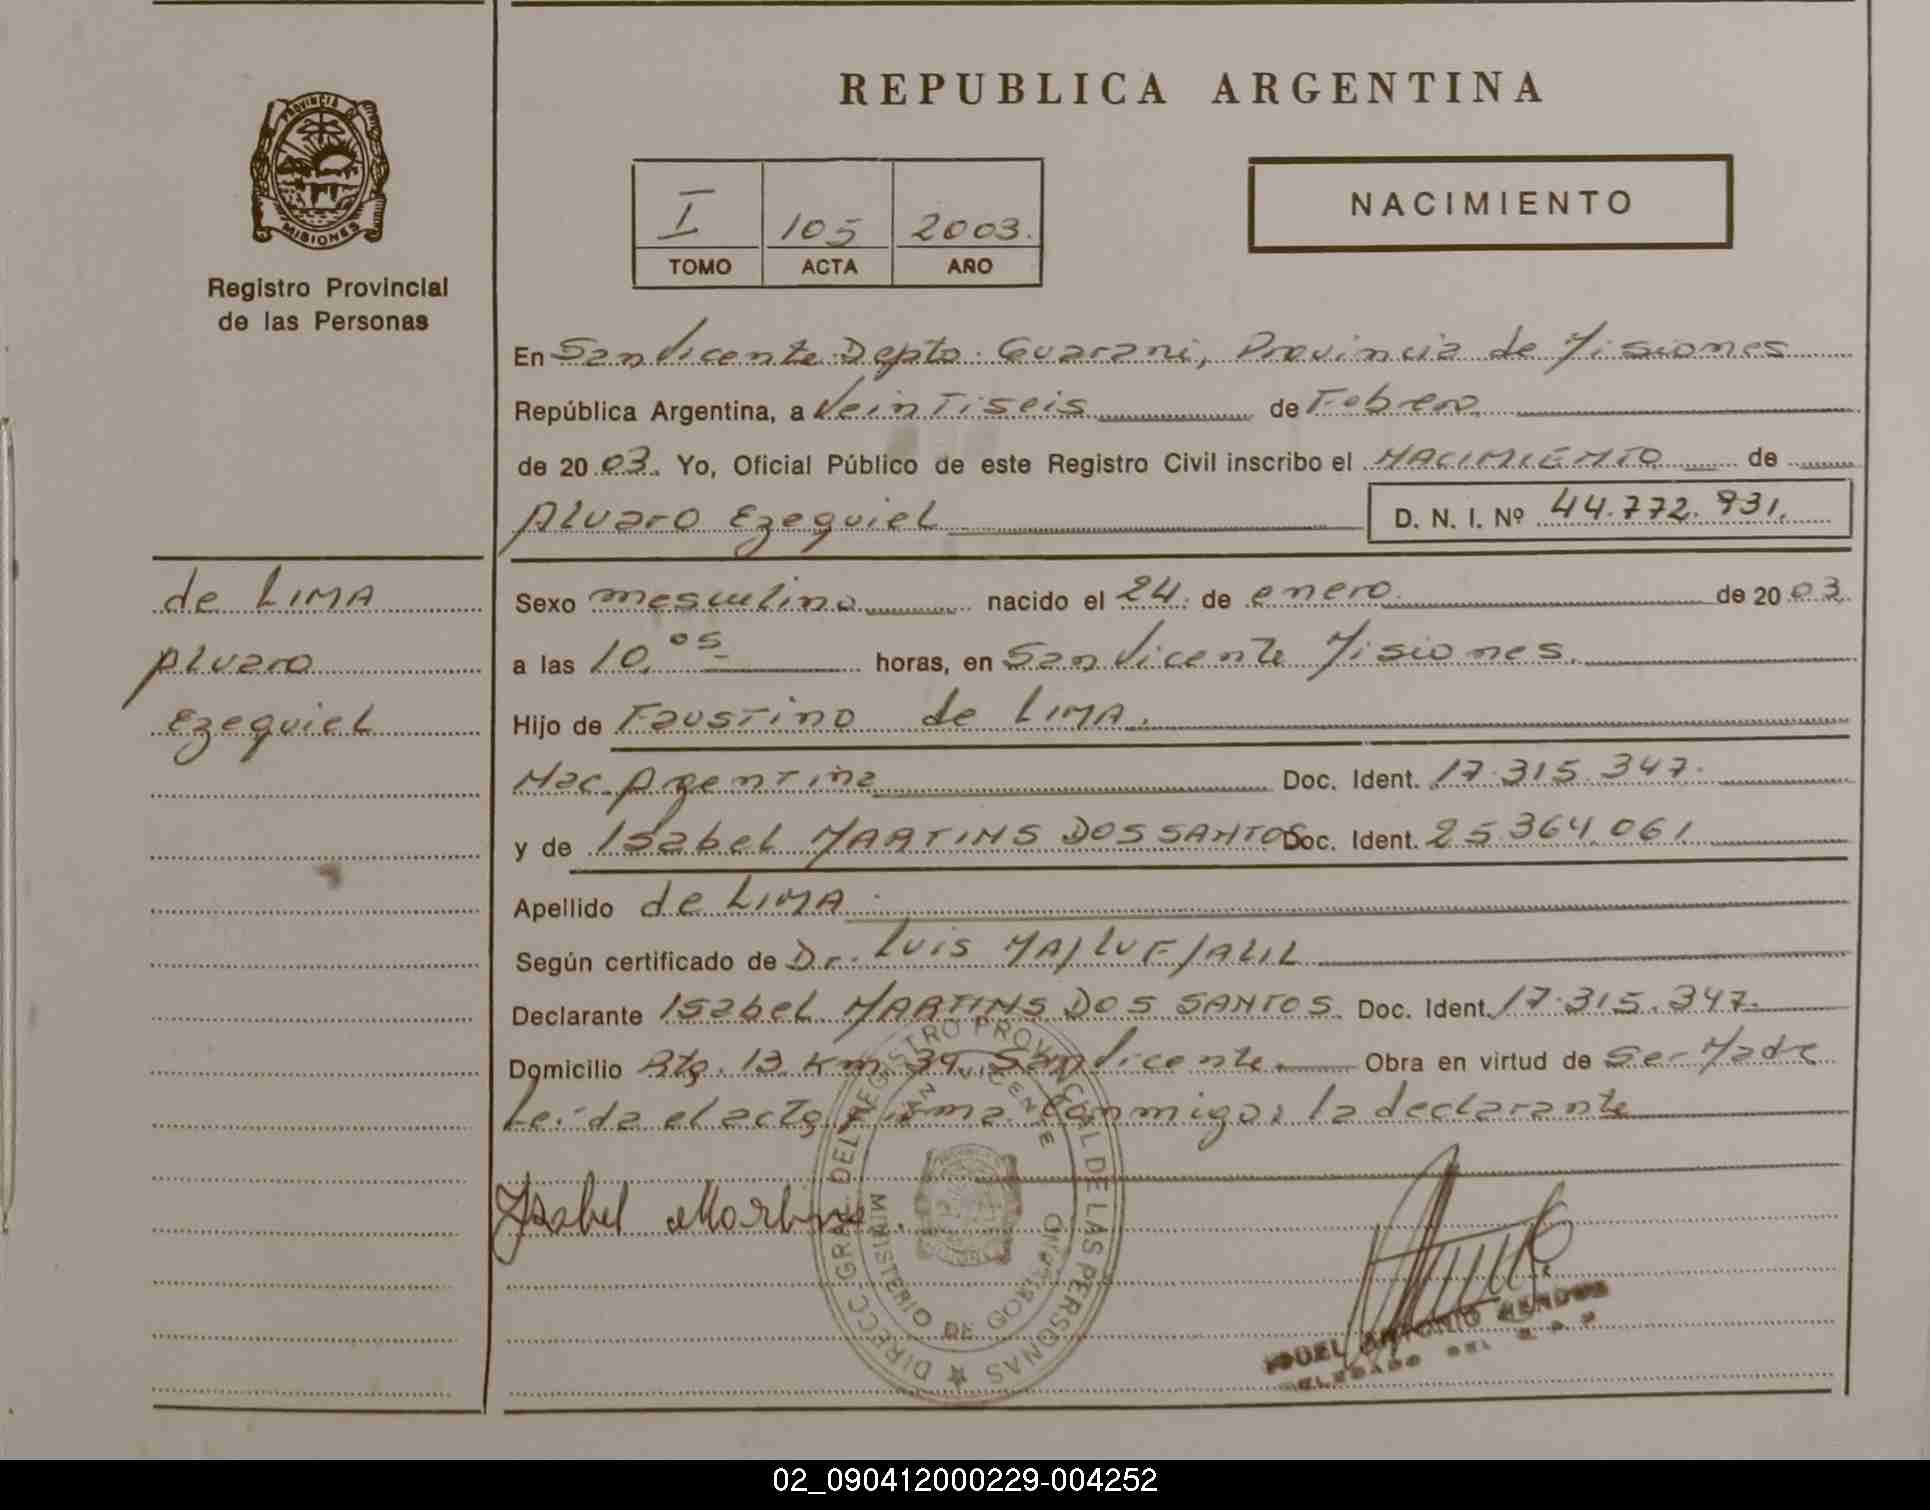 REPUBLICA ARGENTINA
PROVINCIA DE
MISIONES
Registro Provincial
de las Personas
I 105 2003.
TOMO ACTA AÑO
NACIMIENTO
En San Vicente Depto. Guarani, Provincia de Misiones
República Argentina, a Veintiseis de Febrero
de 2003. Yo, Oficial Público de este Registro Civil inscribo el NACIMIENTO de
Alvaro Ezequiel
D. N. I. Nº 44.772.931.
de LIMA
Alvaro
Ezequiel
Sexo masculino nacido el 24 de enero de 2003
a las 10,05 horas, en San Vicente Misiones.
Hijo de Faustino de LIMA.
Nac. Argentina Doc. Ident. 17.315.347.
y de Isabel MARTINS DOS SANTOS Doc. Ident. 25.364.061
Apellido de LIMA
Según certificado de Dr. Luis MAJLUF JALIL
Declarante Isabel MARTINS DOS SANTOS. Doc. Ident. 17.315.347.
Domicilio Rta. 13 Km 39. San Vicente. Obra en virtud de Ser Madre
Leída el acta firma conmigo: la declarante
Isabel Martins.
DIRECC GRAL DEL REGISTRO PROVINCIAL DE LAS PERSONAS
SAN VICENTE
MINISTERIO DE GOBIERNO
ANTONIO
DEL
02_090412000229-004252